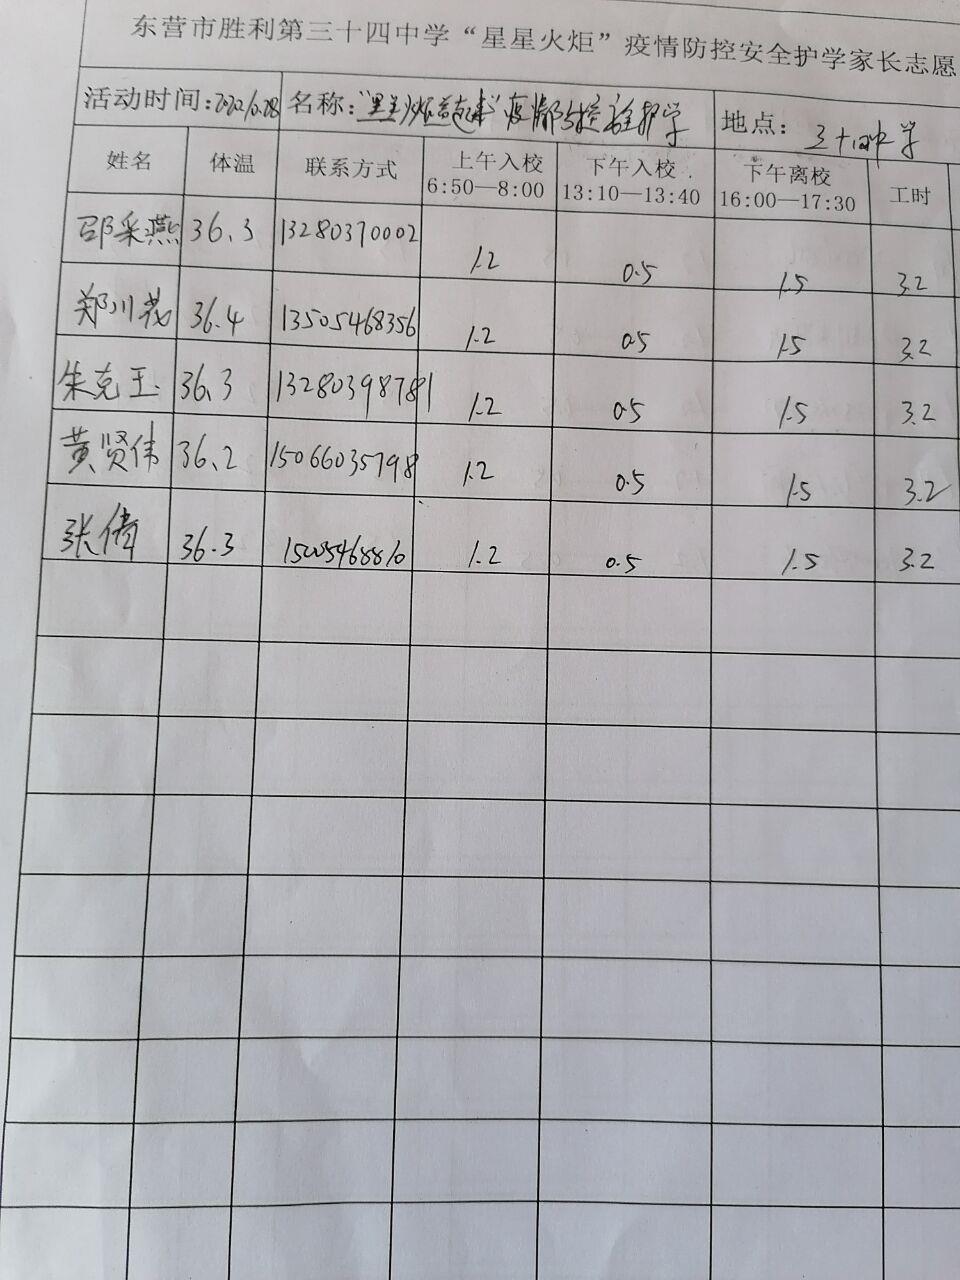 东营市胜利第三十四中学“星星火炬”疫情防控安全护学家长志愿
活动时间: 名称: 疫情防控安全护学 地点: 三十四中学
姓名 体温 联系方式 上午入校 6:50—8:00 下午入校 13:10—13:40 下午离校 16:00—17:30 工时
邵采燕 36.3 13280370002 1.2 0.5 1.5 3.2
郑川花 36.4 13505468356 1.2 0.5 1.5 3.2
朱克玉 36.3 13280398781 1.2 0.5 1.5 3.2
黄贤伟 36.2 15066035798 1.2 0.5 1.5 3.2
张倩 36.3 1.2 0.5 1.5 3.2